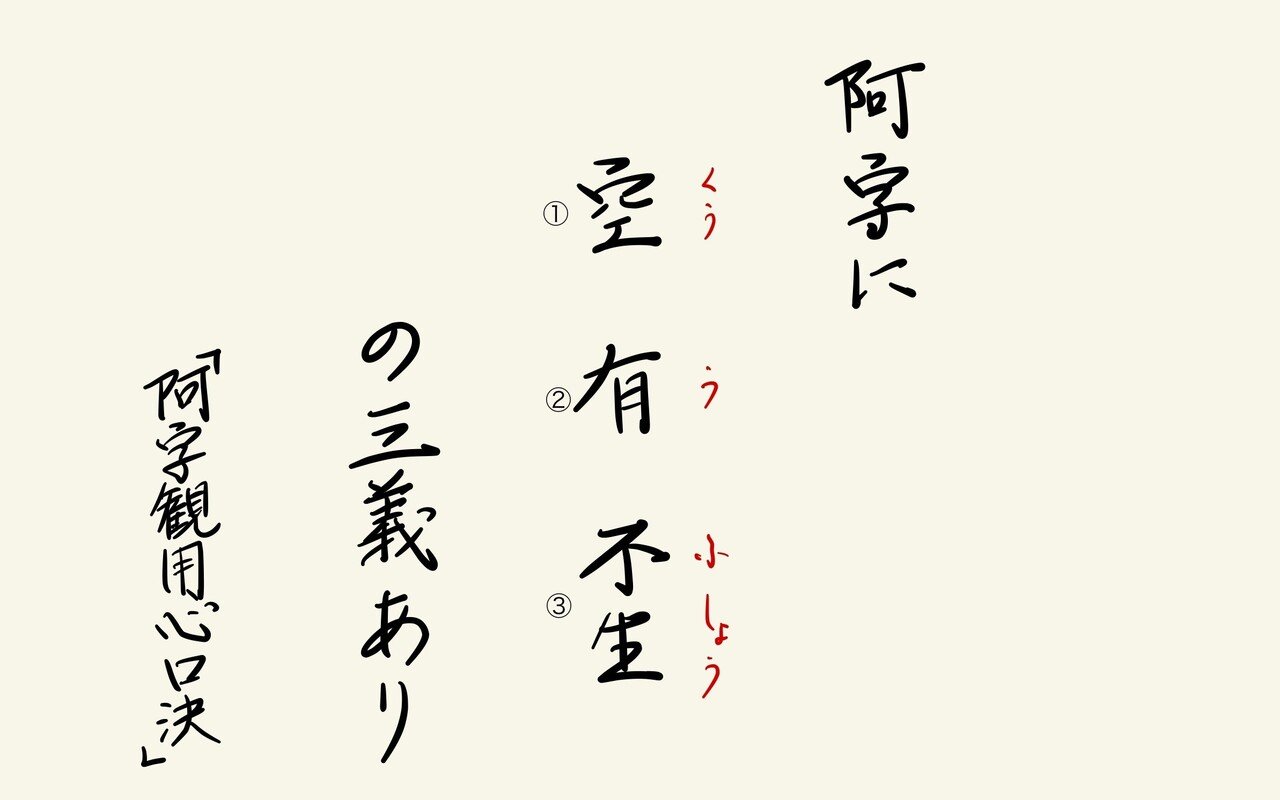 阿字に
くう う ふしょう
①空 ②有 ③不生
の三義あり
「阿字観用心口決」